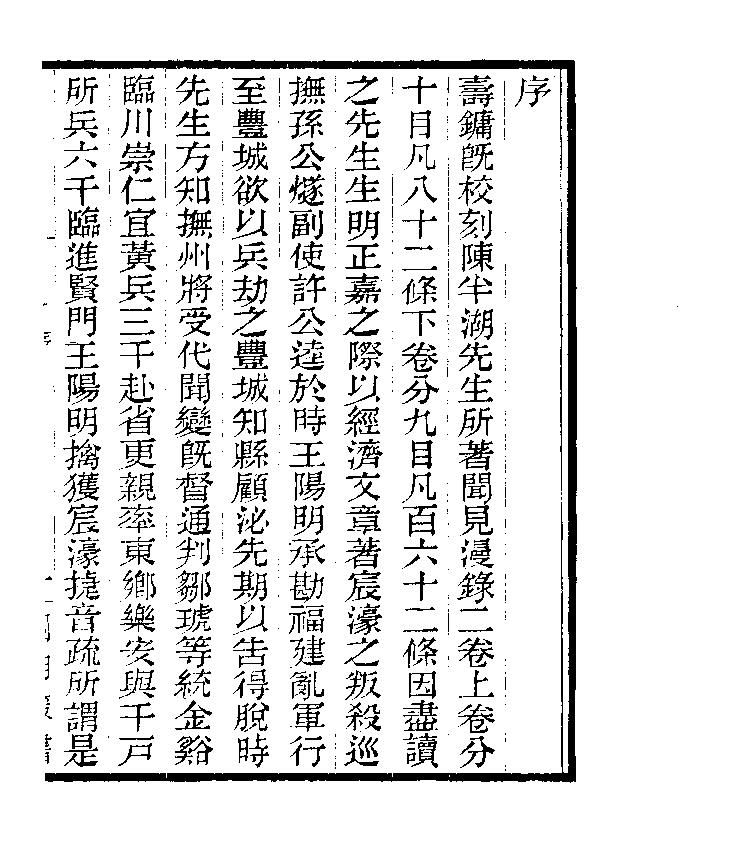 序
壽鏞旣校刻陳半湖先生所著聞見漫錄二卷上卷分
十目凡八十二條下卷分九目凡百六十二條因盡讀
之先生生明正嘉之際以經濟文章著宸濠之叛殺巡
撫孫公燧副使許公逵於時王陽明承勘福建亂軍行
至豐城欲以兵劫之豐城知縣顧泌先期以吿得脫時
先生方知撫州將受代聞變旣督通判鄒琥等統金谿
臨川崇仁宜黃兵三千赴省更親率東鄉樂安與千戸
所兵六千臨進賢門王陽明擒獲宸濠捷音疏所謂是